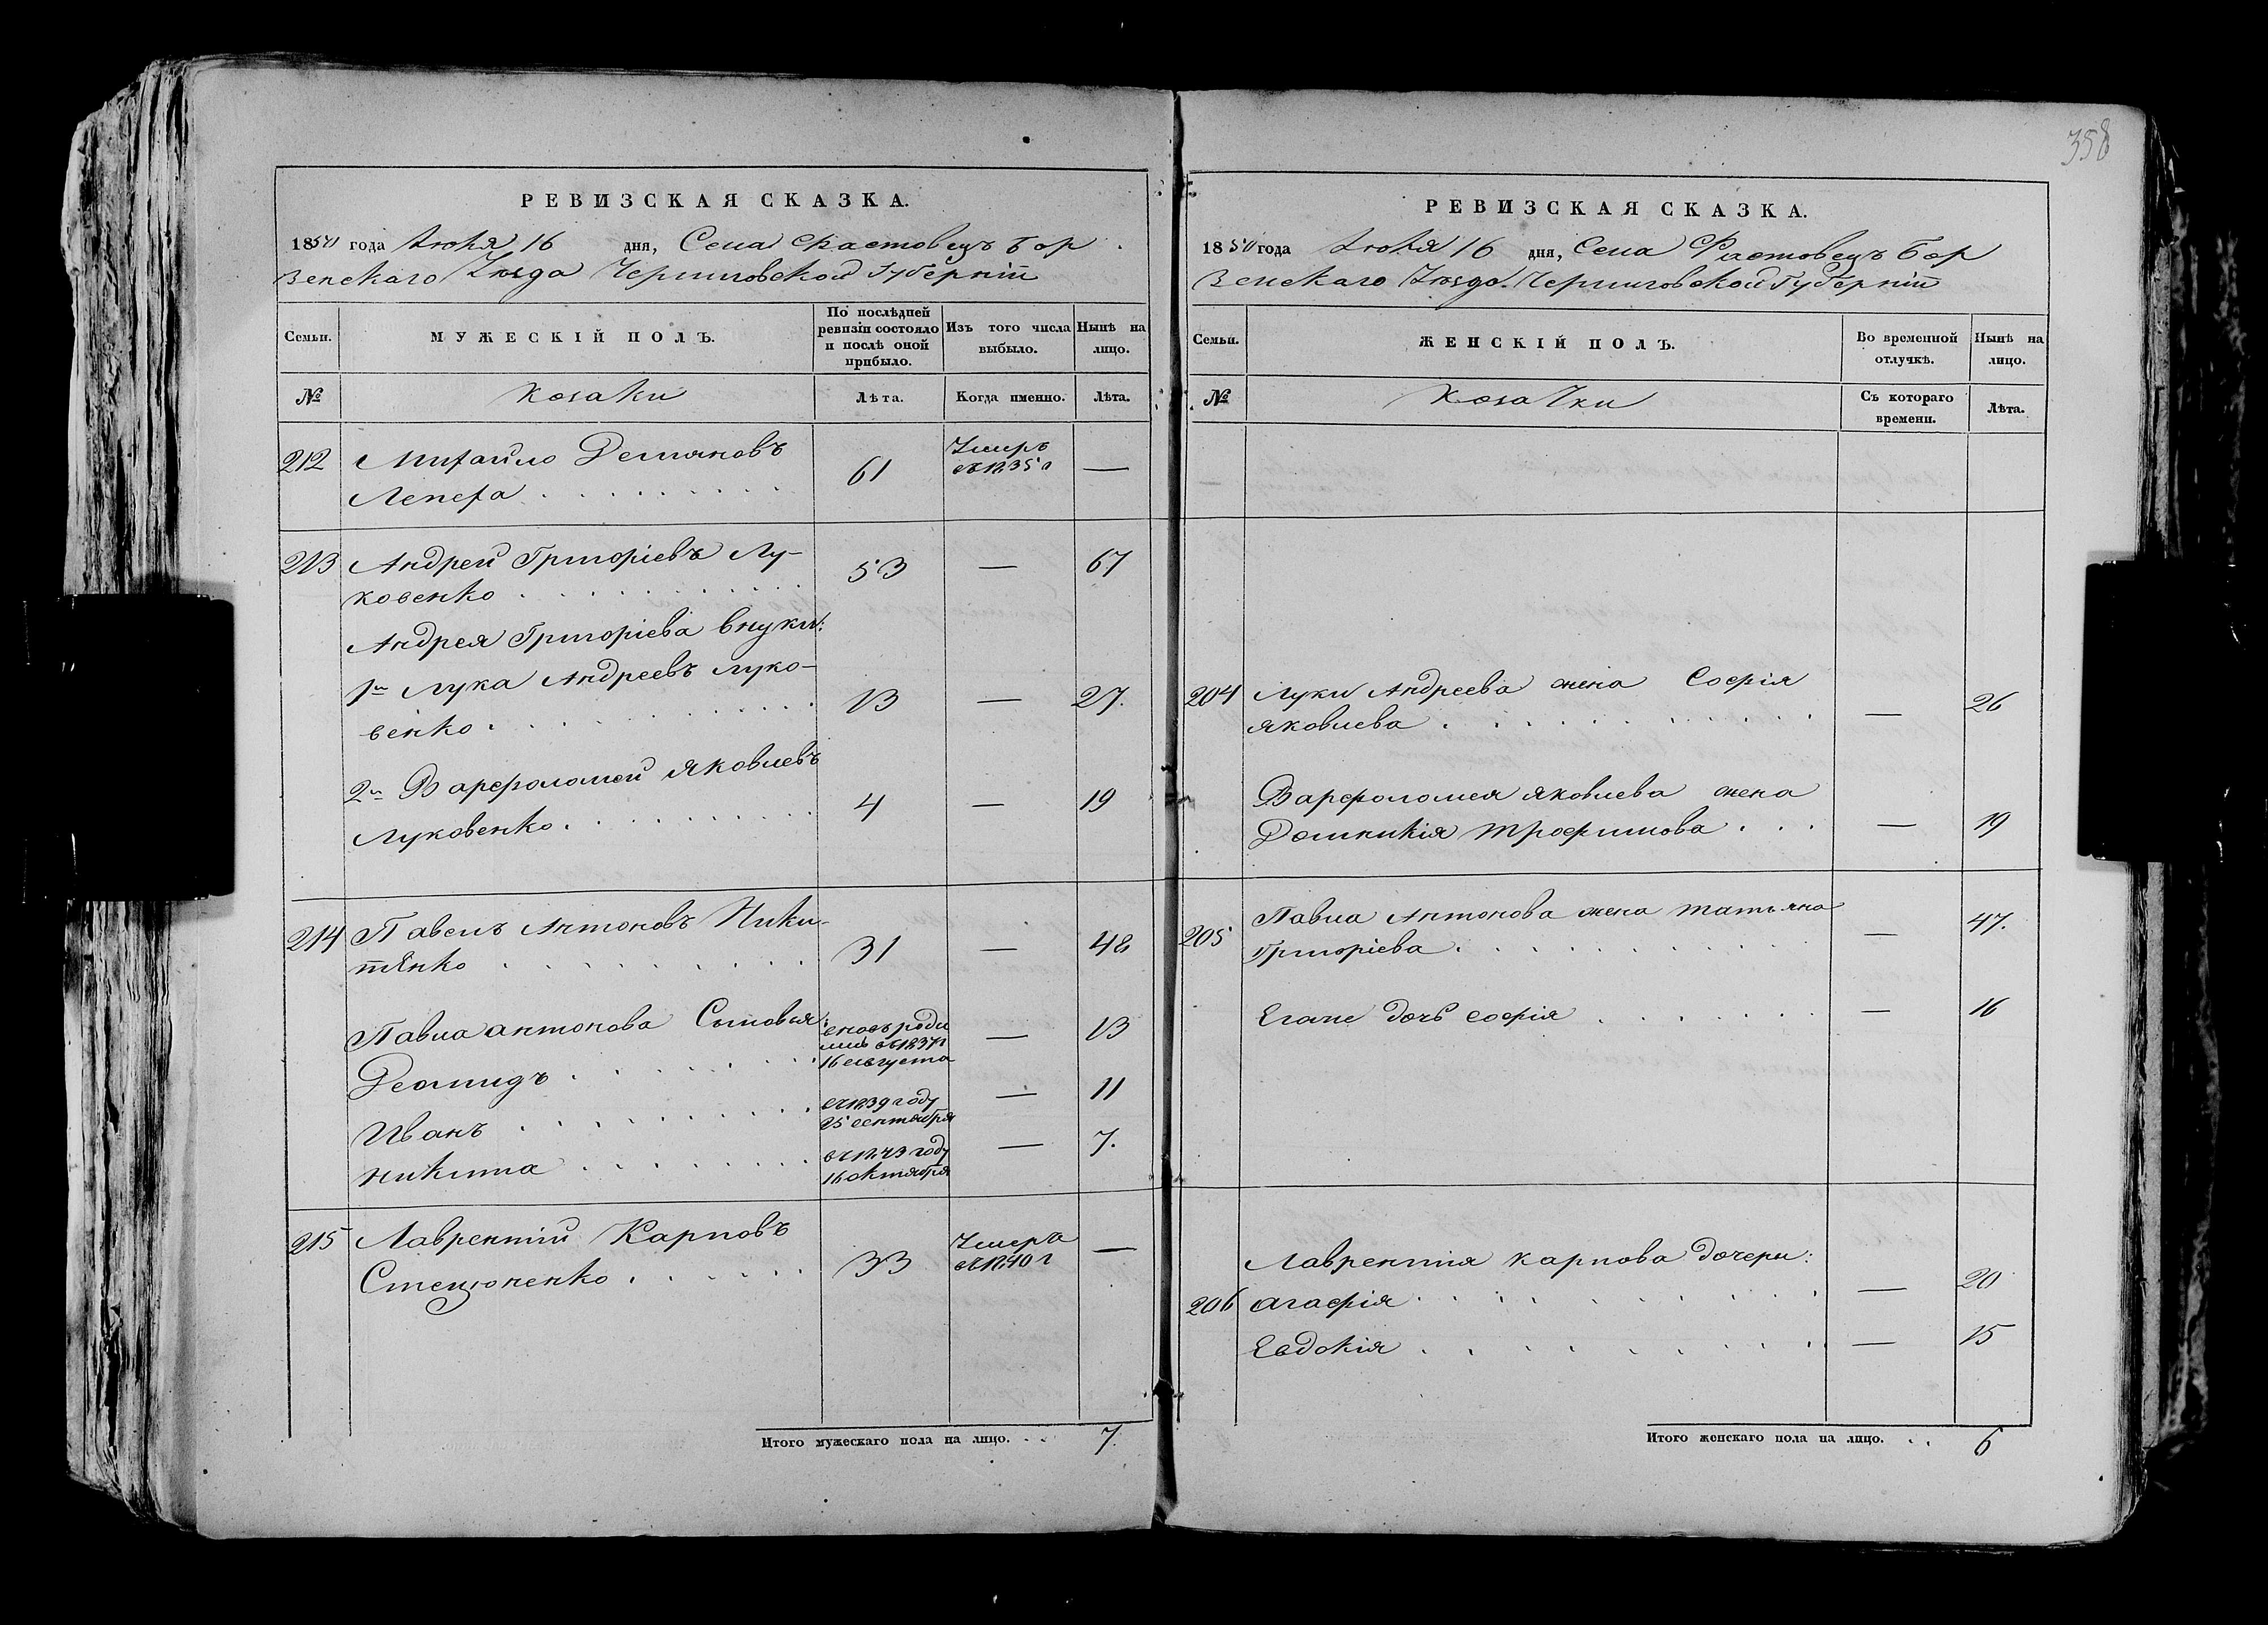 358
РЕВИЗСКАЯ СКАЗКА.
1850 года Июня 16 дня, Села Фастовецъ Бор
зенскаго Уѣзда Черниговской Губерніи
Семьи. МУЖЕСКІЙ ПОЛЪ. По послѣдней ревизіи состояло и послѣ оной прибыло. Изъ того числа выбыло. Нынѣ на лицо.
№ Козаки Лѣта. Когда именно. Лѣта.
212 Михайло Демяновъ 61 Умеръ —
Лепеха въ 1835 г
213 Андрей Григоріевъ Лу- 53 — 67
ковенко
Андрея Григоріева внуки:
1й Лука Андреевъ Луко- 13 — 27.
венко
2й Варфоломей Яковлевъ 4 — 19
Луковенко
214 Павелъ Антоновъ Ники- 31 — 48
тѣнко
Павла Антонова Сыновья: вновь роди
лись въ 1837 г — 13
Деомидъ 16 августа
въ 1839 году — 11
Иванъ 25 сентября
въ 1843 году — 7.
Никита 16 октября
215 Лаврентій Карповъ 33 Умеръ —
Стецюненко въ 1840 г
Итого мужескаго пола на лицо. 7.
РЕВИЗСКАЯ СКАЗКА.
1850 года Июня 16 дня, Села Фастовецъ Бор
зенскаго Уѣзда Черниговской Губерніи
Семьи. ЖЕНСКІЙ ПОЛЪ. Во временной отлучкѣ. Нынѣ на лицо.
№ Козачки Съ котораго времени. Лѣта.
204 Луки Андреева жена Софія
Яковлева — 26
Варфоломея Яковлева жена
Домникія Трофимова — 19
205 Павла Антонова жена Татьяна — 47.
Григоріева
Егоже дочь Софія — 16
Лаврентія Карпова дочери:
206 Агафія — 20
Евдокія — 15
Итого женскаго пола на лицо. 6